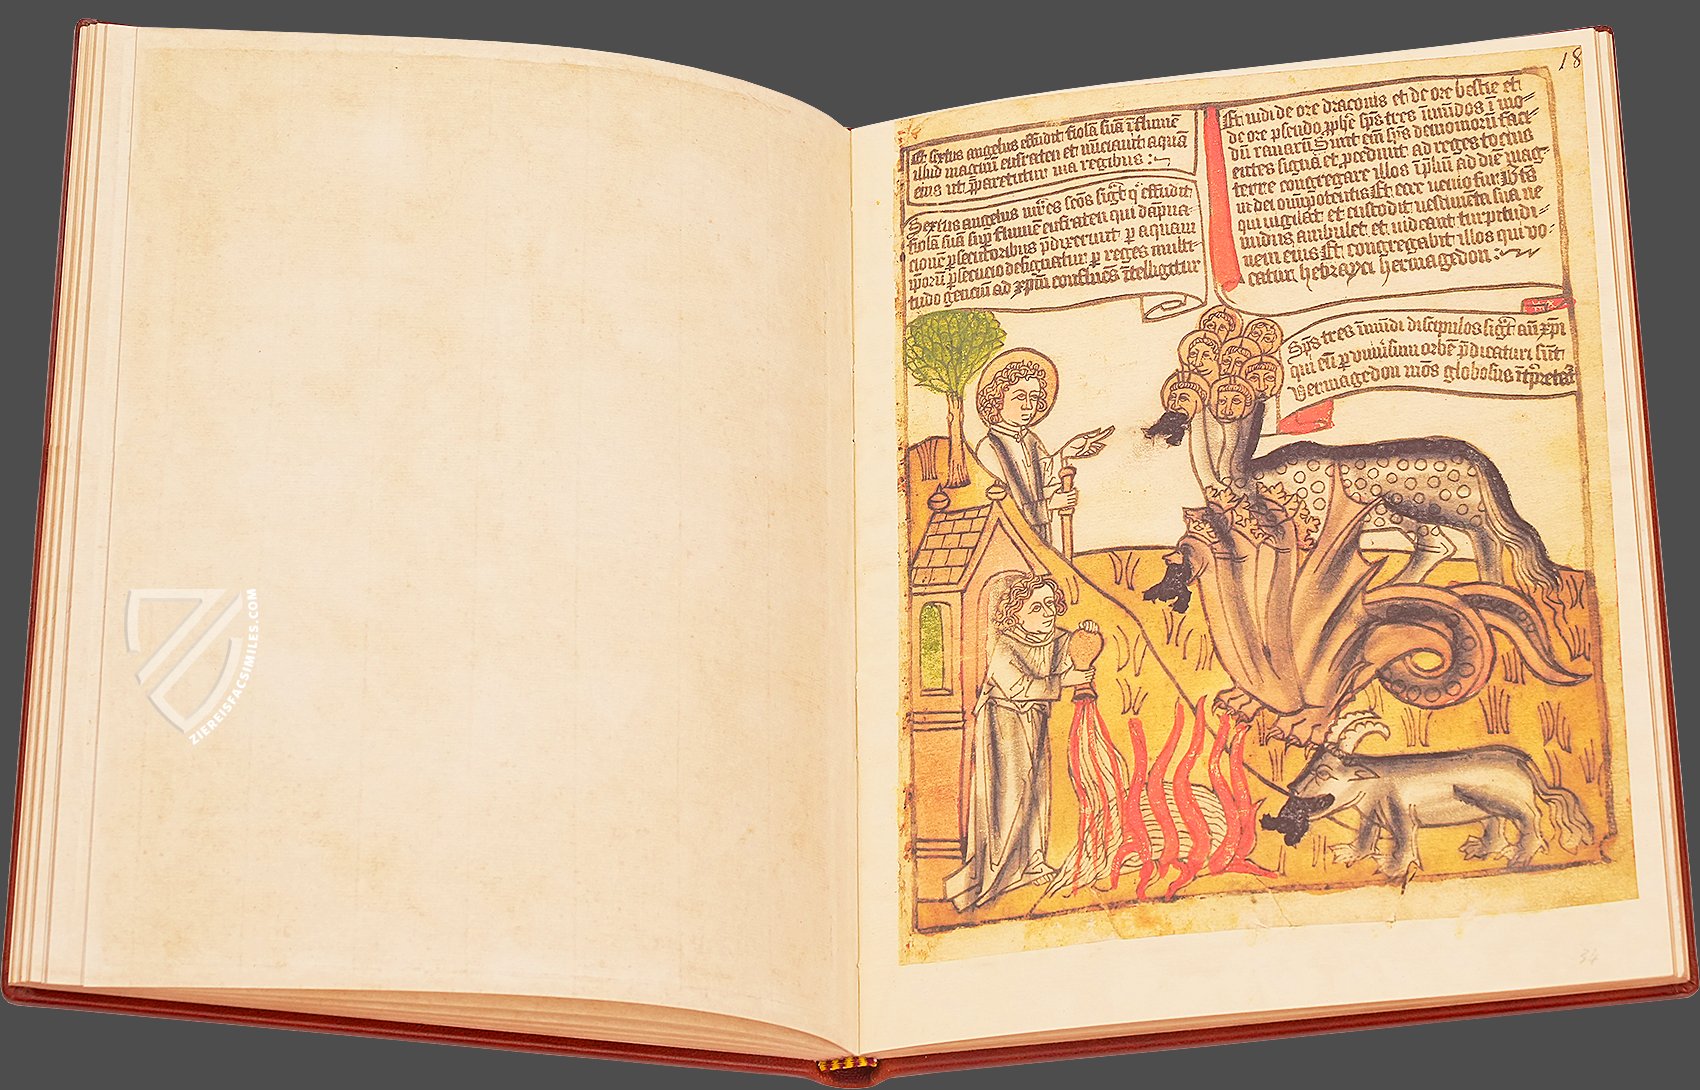 18
Et sextus angelus effudit fiolā suā ī flumē
illud magnū eufraten et
eius ut ꝑpararetur via regibus :~
Sextus angelus sc̄os sigt̄ qͥ effudit
fiolā suā suꝑ flumē eufraten qui dāpna-
cionē ꝑsecutoribus p̄dixerunt ꝑ aquam
ip̄orū ꝑsecucio designatur ꝑ reges multi-
tudo genciū ad xp̄m confluēs ītelligitur
Et vidi de ore draconis et de ore bestie et
de ore pseudo ꝓphē sp̄s tres īmūdos ī mo-
dū ranarū Sunt em̄ sp̄s demoniorū faci-
entes signa et ꝓcedunt ad reges tocius
terre congregare illos ī p̄liū ad diē mag-
nū dei om̄ipotentis Et ecce venio sic̄ fur Btūs
qui vigilat et custodit vestimēta sua ne
nudus ambulet et videant turpitudi-
nem eius Et congregabit illos qui vo-
catur hebrayce hermagedon :~
Sp̄s tres īmūdi discipulos sigt̄ an̄xp̄i
qui eū ꝑ vniūsum orbē p̄dicaturi sūt
Hermagedon mōs globosus ītp̄retat̄
34
ZIEREISFACSIMILES.COM